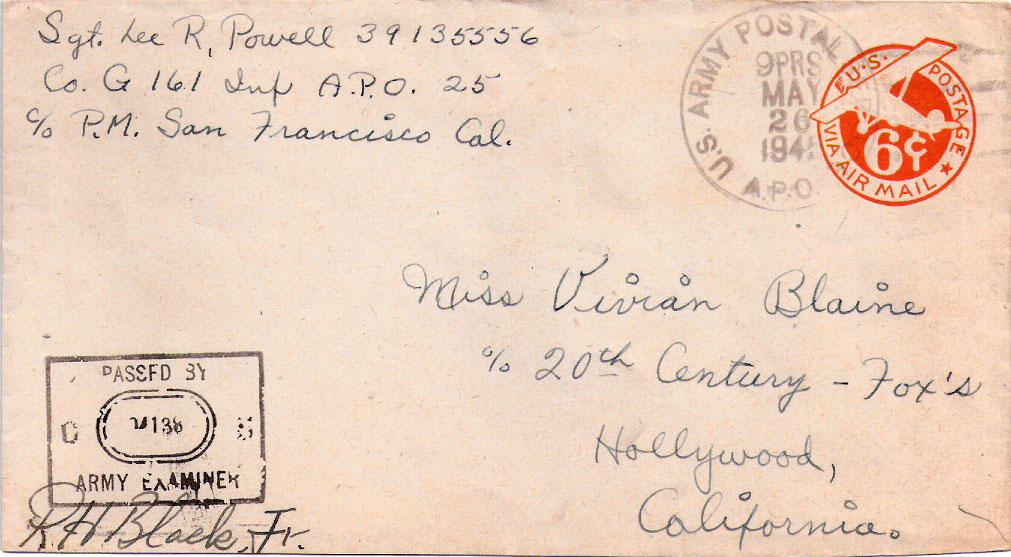 Sgt. Lee R. Powell 39135556
Co. G 161 Inf A.P.O. 25
c/o P.M. San Francisco Cal.
U.S. ARMY POSTAL
MAY
26
A.P.O.
U.S. POSTAGE
6¢
VIA AIR MAIL
Miss Vivian Blaine
c/o 20th Century - Fox's
Hollywood,
California.
PASSED BY
ARMY EXAMINER
R H Black, Jr.